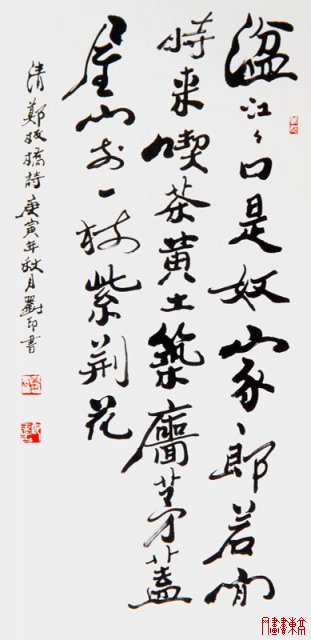 湓江々口是奴家郎若閒
時来喫茶黄土築廧茅蓋
屋門前一樹紫荆花
清鄭板橋詩庚寅年秋月劉印書